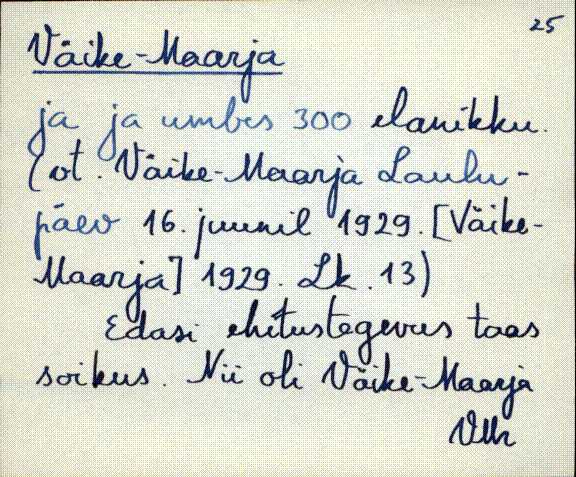 25
Väike-Maarja
ja ja umbes 300 elanikku.
(vt. Väike-Maarja Laulu-
päev 16. juunil 1929. [Väike-
Maarja] 1929. Lk. 13)
Edasi ehitustegevus taas
soikus. Nii oli Väike-Maarja